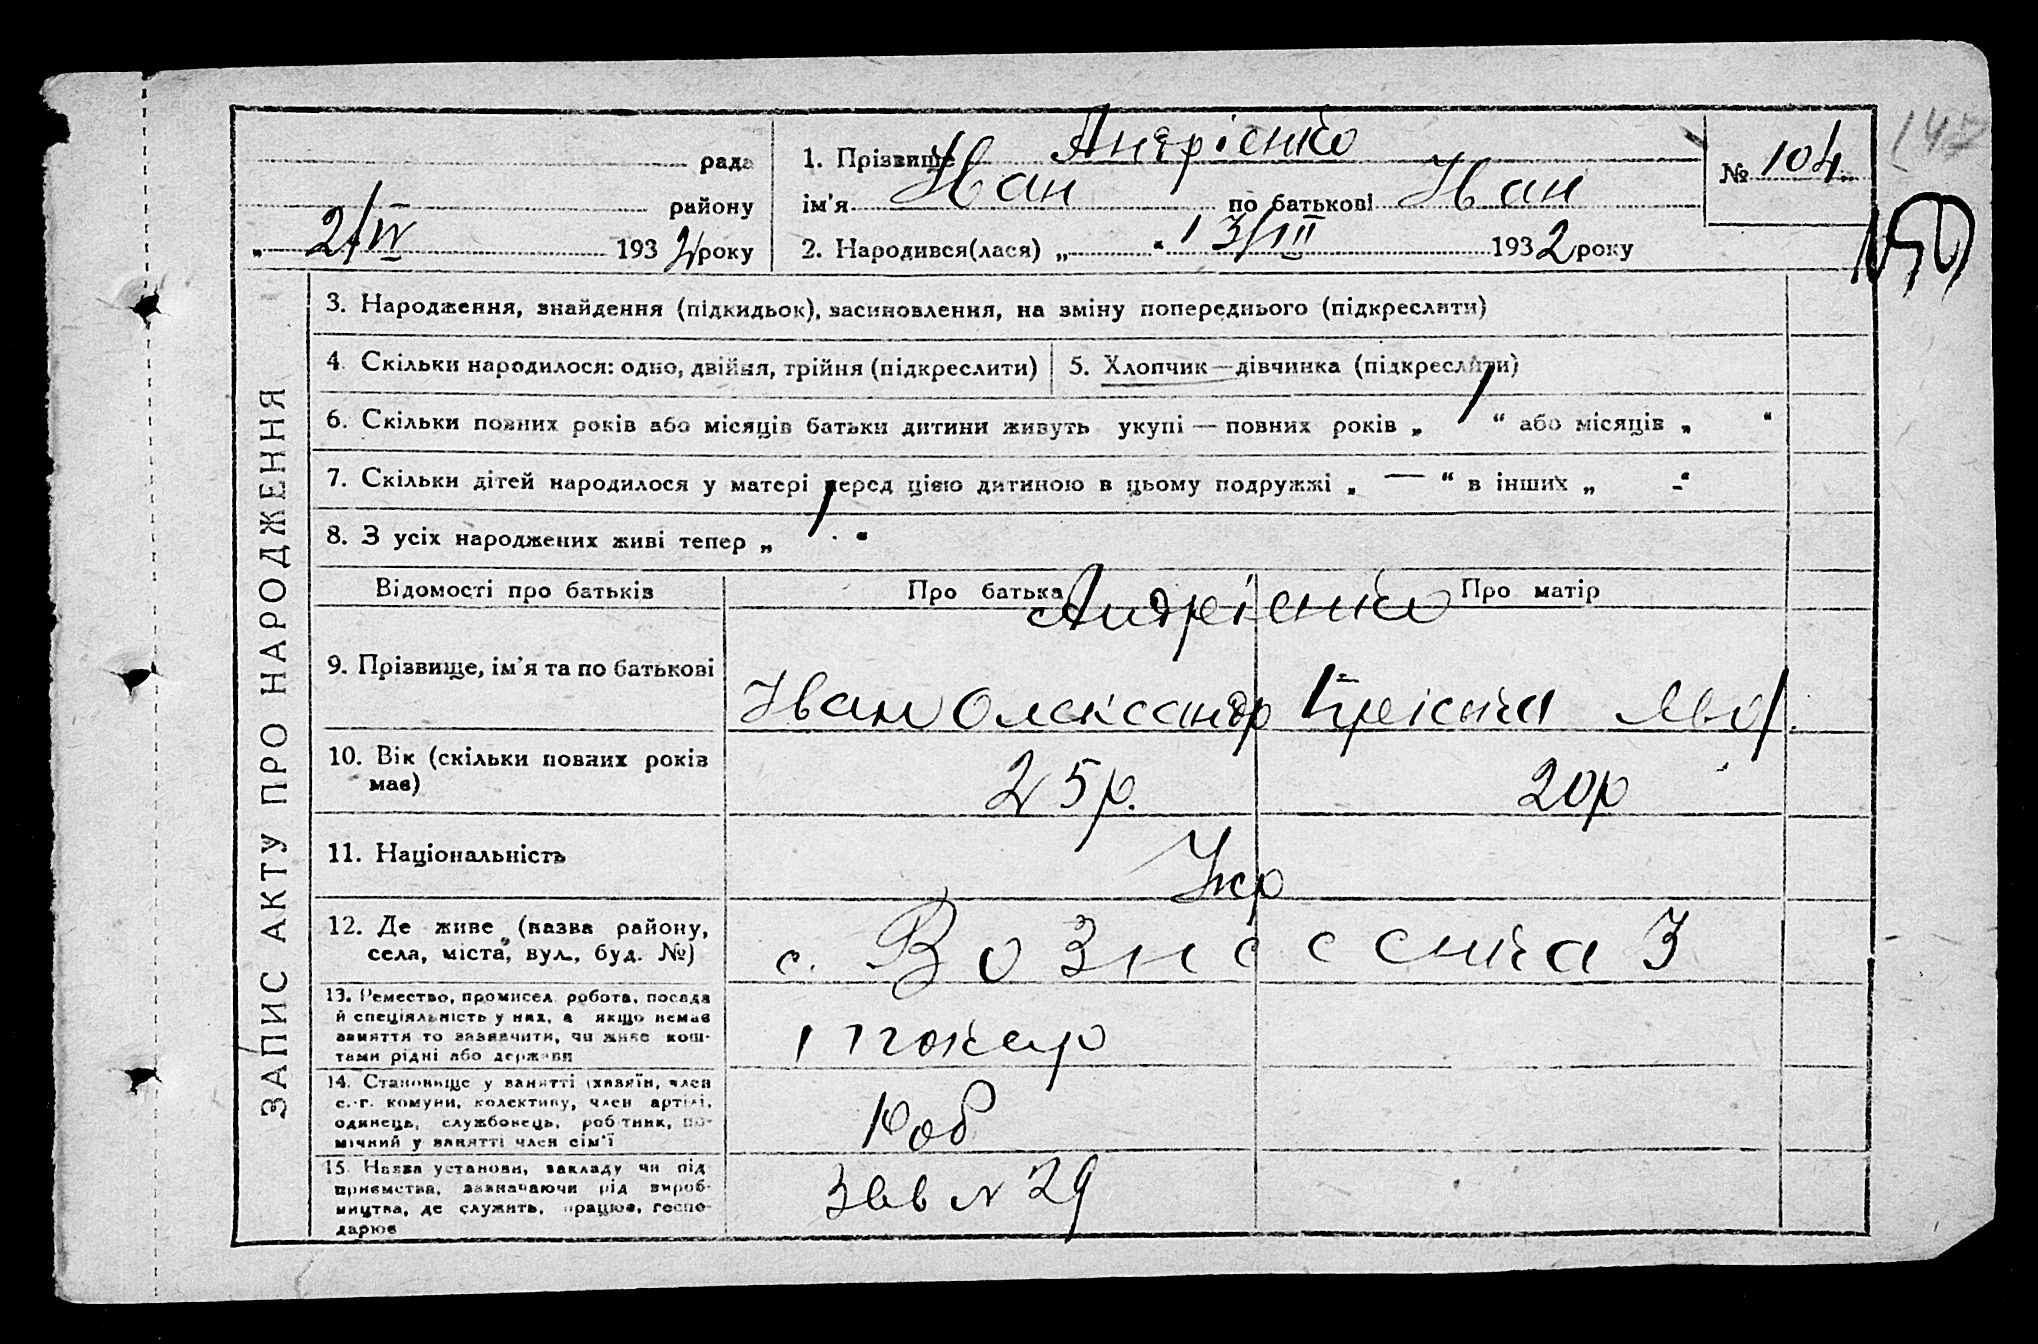 рада
району
„ 2/IV 1932 року
1. Прізвище Андрієнко
ім'я Иван по батькові Иван
2. Народився(лася) „ “ 13/III 1932 року
№ 104
150
ЗАПИС АКТУ ПРО НАРОДЖЕННЯ
3. Народження, знайдення (підкидьок), засиновлення, на зміну попереднього (підкреслити)
4. Скільки народилося: одно, двійня, трійня (підкреслити)
5. Хлопчик — дівчинка (підкреслити)
6. Скільки повних років або місяців батьки дитини живуть укупі — повних років „ 1 “ або місяців „ “
7. Скільки дітей народилося у матері перед цією дитиною в цьому подружжі „ — “ в інших „ - “
8. З усіх народжених живі тепер „ 1 “
Відомості про батьків
Про батька
Про матір
Андрієнко
9. Прізвище, ім'я та по батькові
Иван Олександр
10. Вік (скільки повних років
має)
25 р.
20 р
11. Національність
Укр
12. Де живе (назва району,
села, міста, вул., буд. №)
с. Вознесенка 3
13. Ремество, промисел, робота, посада
й спеціяльність у них, а якщо немає
заняття то зазначити, чи живе кош-
тами рідні або держави
токар
14. Становище у занятті (хазяїн, член
с.-г. комуни, колективу, член артілі,
одинець, службовець, робітник, по-
мічний у занятті член сім'ї
Роб
15. Назва установи, закладу чи під-
приємства, зазначаючи рід вироб-
ництва, де служить, працює, госпо-
дарює
Зав № 29